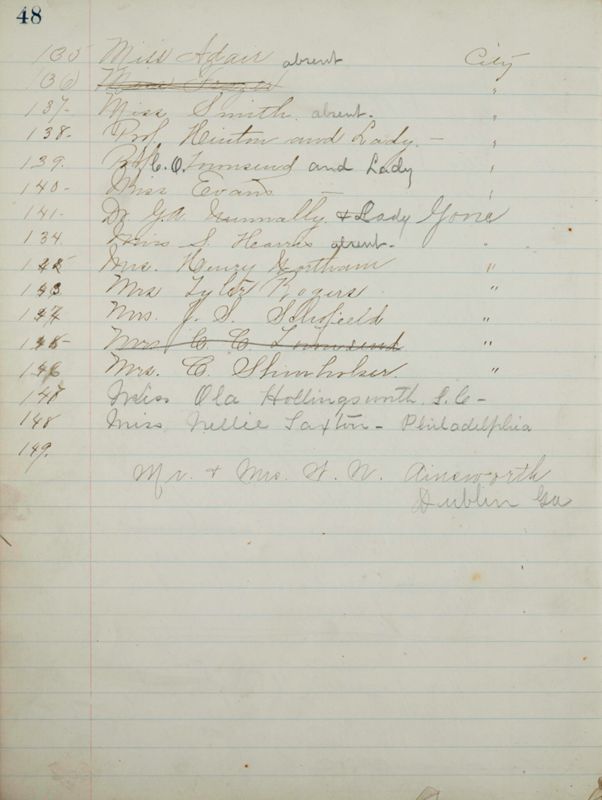 48
135 Miss Adair absent City
136 "
137. Miss Smith. absent. "
138. Prof. Hinton and Lady. — "
139. C. O. Townsend and Lady "
140- Miss Evans "
141- Dr G.A. Nunnally & Lady Gone
134. Miss S. Hearris absent. "
Mrs. Henry Wortham "
143 Mrs Tyler Rogers
144 Mrs. J. S. Schofield "
145- Mrs C C Townsend "
146 Mrs. C. Shinholser "
147 Miss Ola Hollingsworth S.C-
148 Miss Nellie Saxton- Philadelphia
149.
Mr. & Mrs. W. N. Ainsworth
Dublin Ga